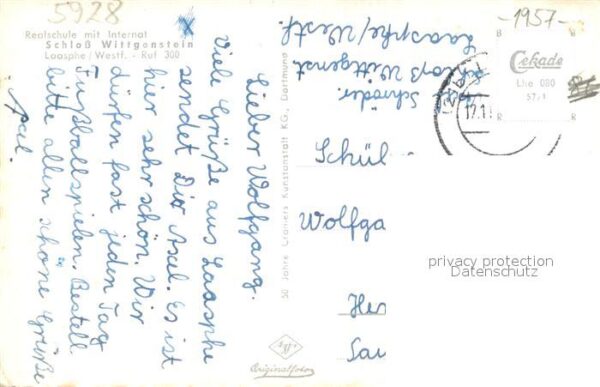 5928
Realschule mit Internat
Schloß Wittgenstein
Laasphe/Westf. - Ruf 300
Lieber Wolfgang.
Viele Grüße aus Laasphe
sendet Dir Axel. Es ist
hier sehr schön. Wir
dürfen fast jeden Tag
Fußballspielen. Bestell
bitte allen schöne Grüße
Axel.
50 Jahre Cramers Kunstanstalt KG., Dortmund
Originalfoto
Schröder.
Schloß Wittgenst
Laasphe/Westf.
-1957-
B
R
Cekade
Lha 080
57.1
B
R
17.1
Schül
Wolfga
Her
Sau
privacy protection
Datenschutz